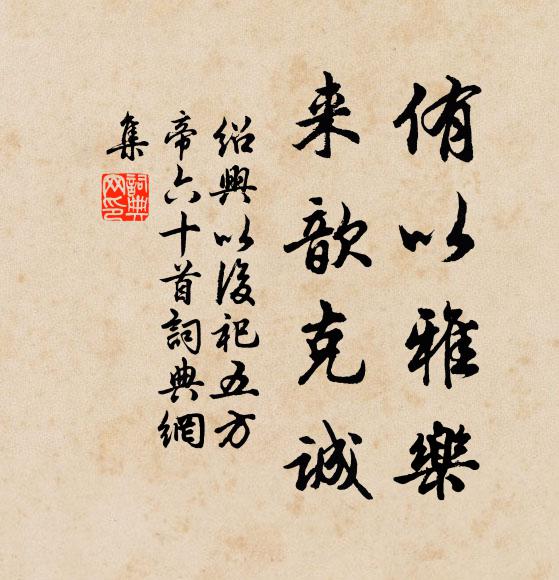 侑以雅樂
来歆克誠
紹興以後祀五方
帝六十首詞典網
集
詞典
网印